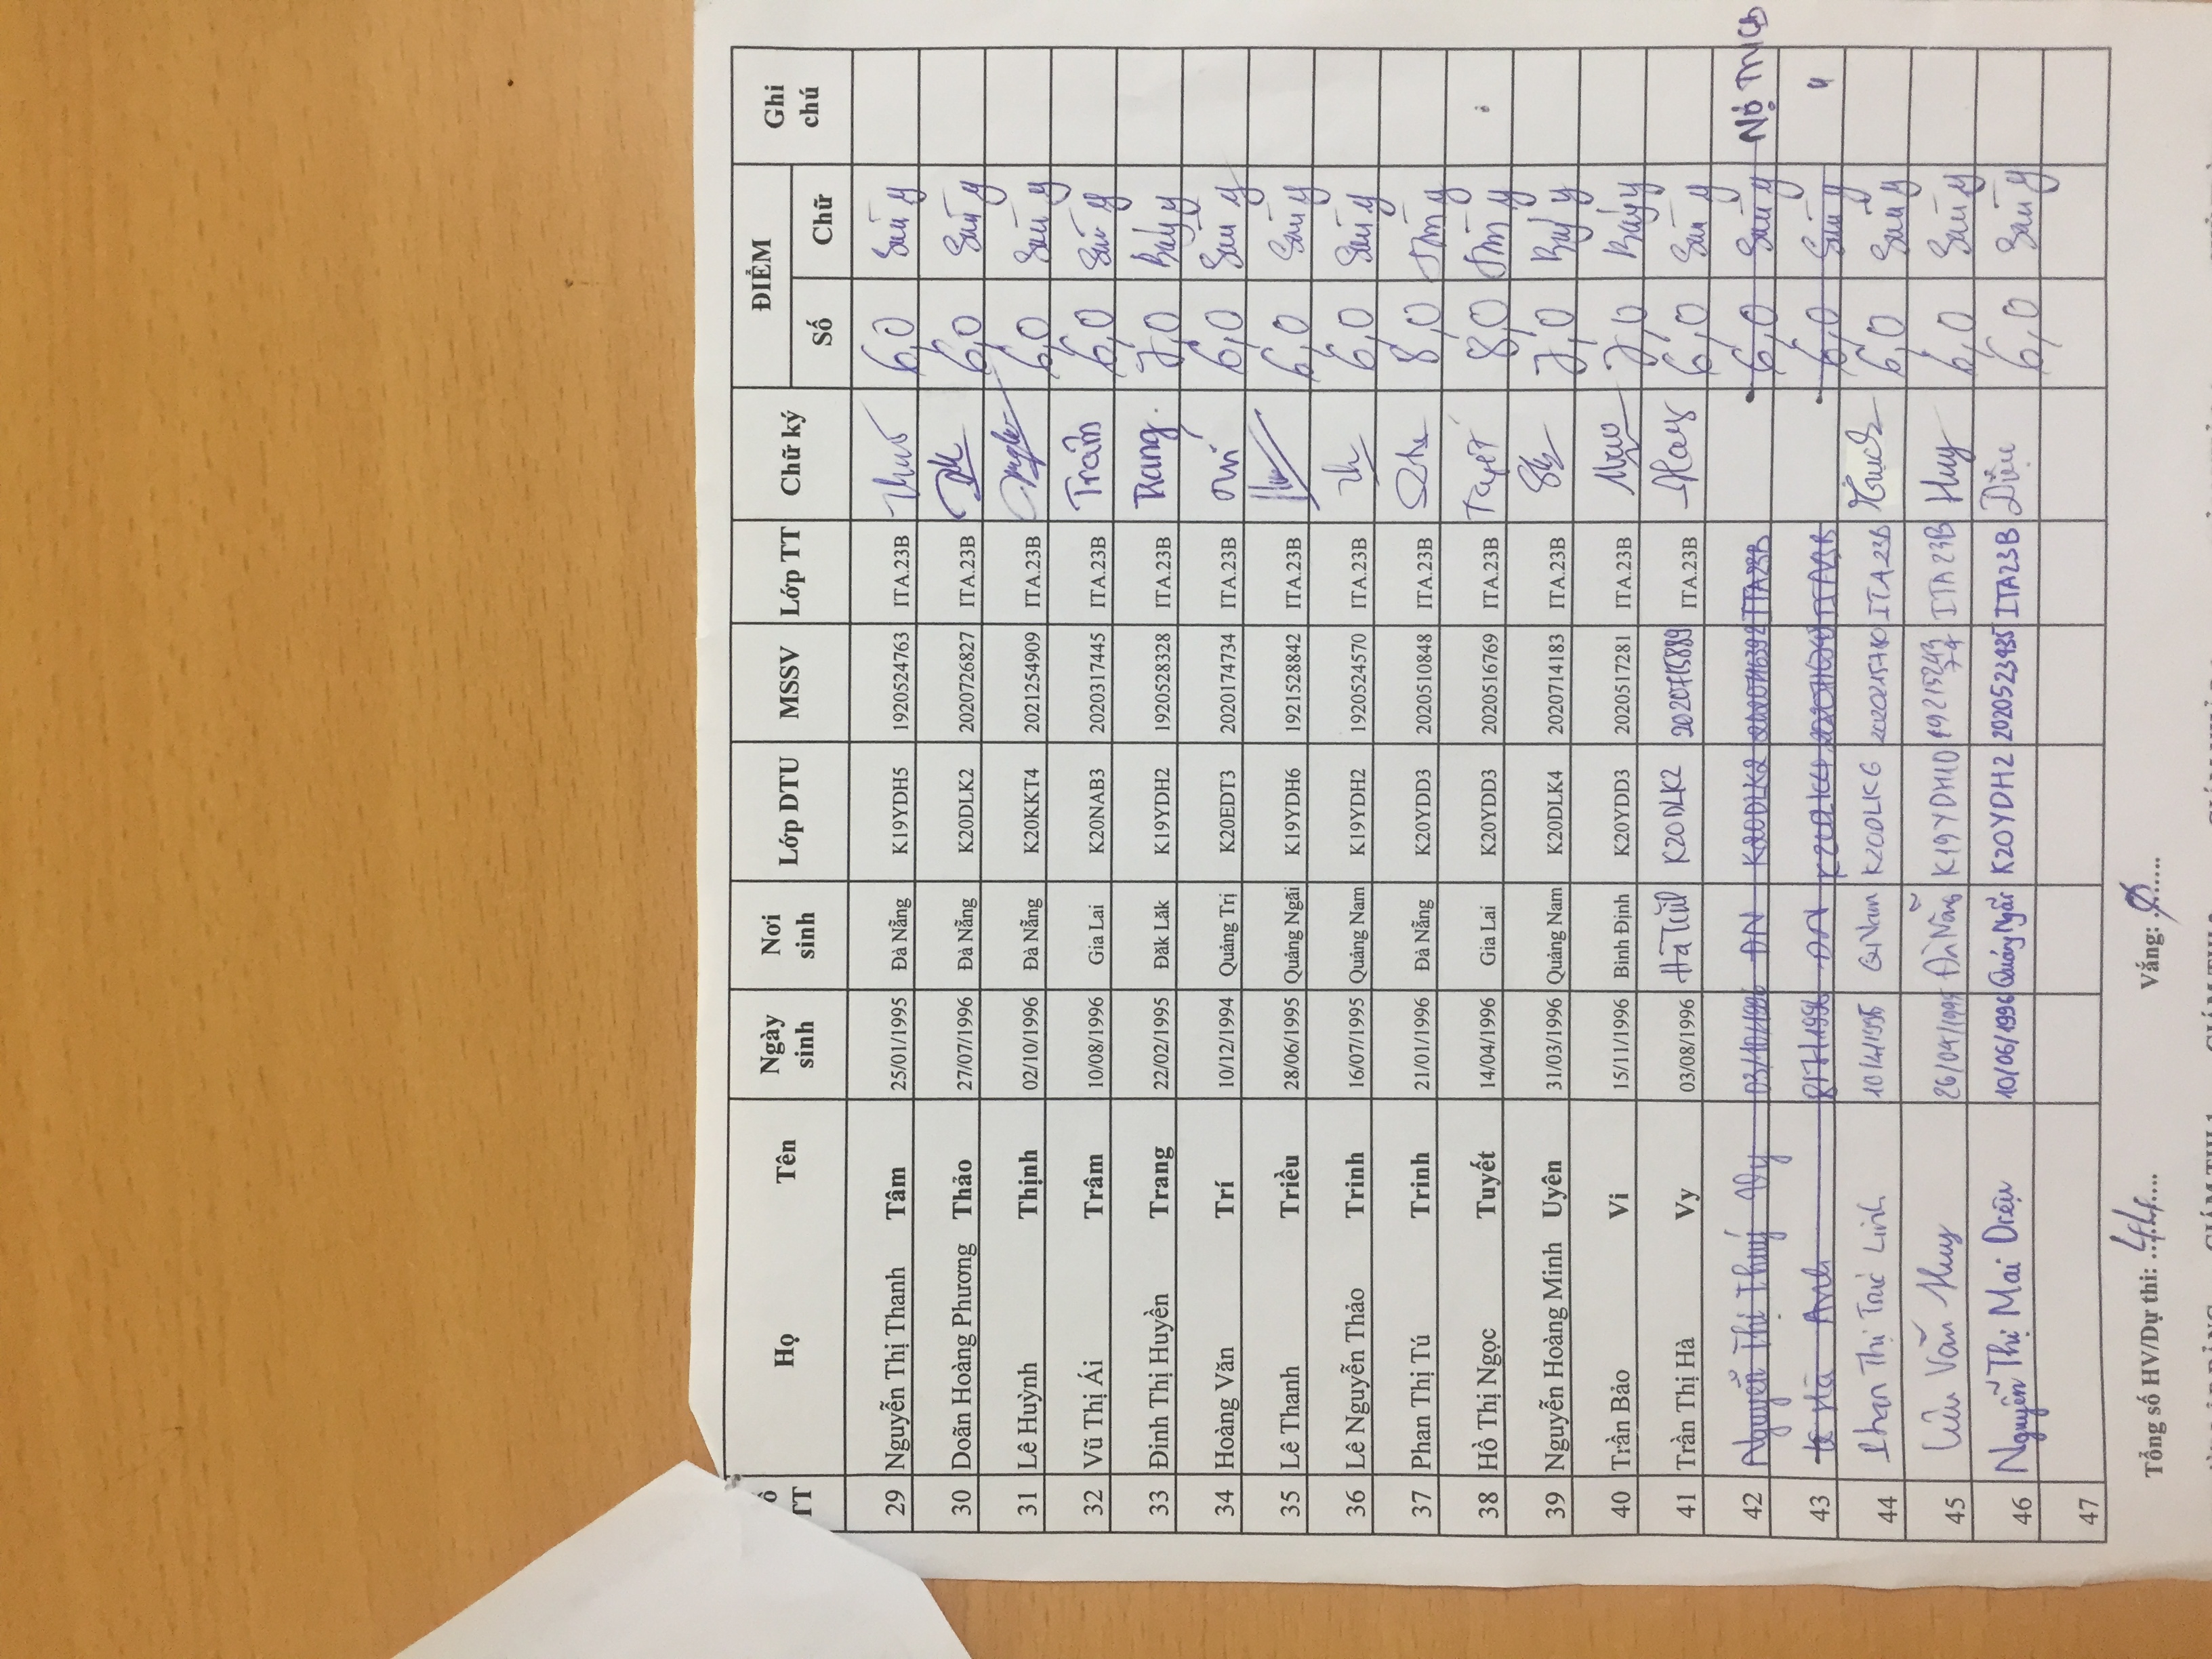 Số TT Họ Tên Ngày sinh Nơi sinh Lớp DTU MSSV Lớp TT Chữ ký ĐIỂM Số Chữ Ghi chú
29 Nguyễn Thị Thanh Tâm 25/01/1995 Đà Nẵng K19YDH5 1920524763 ITA.23B 6,0 Sáu
30 Doãn Hoàng Phương Thảo 27/07/1996 Đà Nẵng K20DLK2 2020726827 ITA.23B 6,0 Sáu
31 Lê Huỳnh Thịnh 02/10/1996 Đà Nẵng K20KKT4 2021254909 ITA.23B 6,0 Sáu
32 Vũ Thị Ái Trâm 10/08/1996 Gia Lai K20NAB3 2020317445 ITA.23B Trâm 6,0 Sáu
33 Đinh Thị Huyền Trang 22/02/1995 Đăk Lăk K19YDH2 1920528328 ITA.23B Trang 7,0 Bảy
34 Hoàng Văn Trí 10/12/1994 Quảng Trị K20EDT3 2020174734 ITA.23B 6,0 Sáu
35 Lê Thanh Triều 28/06/1995 Quảng Ngãi K19YDH6 1921528842 ITA.23B 6,0 Sáu
36 Lê Nguyễn Thảo Trinh 16/07/1995 Quảng Nam K19YDH2 1920524570 ITA.23B 6,0 Sáu
37 Phan Thị Tú Trinh 21/01/1996 Đà Nẵng K20YDD3 2020510848 ITA.23B 8,0 Tám
38 Hồ Thị Ngọc Tuyết 14/04/1996 Gia Lai K20YDD3 2020516769 ITA.23B Tuyết 8,0 Tám
39 Nguyễn Hoàng Minh Uyên 31/03/1996 Quảng Nam K20DLK4 2020714183 ITA.23B 7,0 Bảy
40 Trần Bảo Vi 15/11/1996 Bình Định K20YDD3 2020517281 ITA.23B 7,0 Bảy
41 Trần Thị Hà Vy 03/08/1996 Hà Tĩnh K20DLK2 2020715889 ITA.23B 6,0 Sáu
42 Nguyễn Thị Thuý Vy 03/10/1996 ĐN K20DLK2 ITA23B 6,0 Sáu Nợ
43 Hà Anh ĐN 6,0 Sáu "
44 Phan Thị Trúc Linh K20DLK6 ITA23B 6,0 Sáu
45 Văn Huy 26/04/1995 Đà Nẵng K19YDH10 ITA23B Huy 6,0 Sáu
46 Nguyễn Thị Mai Diệu 10/06/1996 Quảng Ngãi K20YDH2 2020523935 ITA23B Diệu 6,0 Sáu
47
Tổng số HV/Dự thi: 44 Vắng: